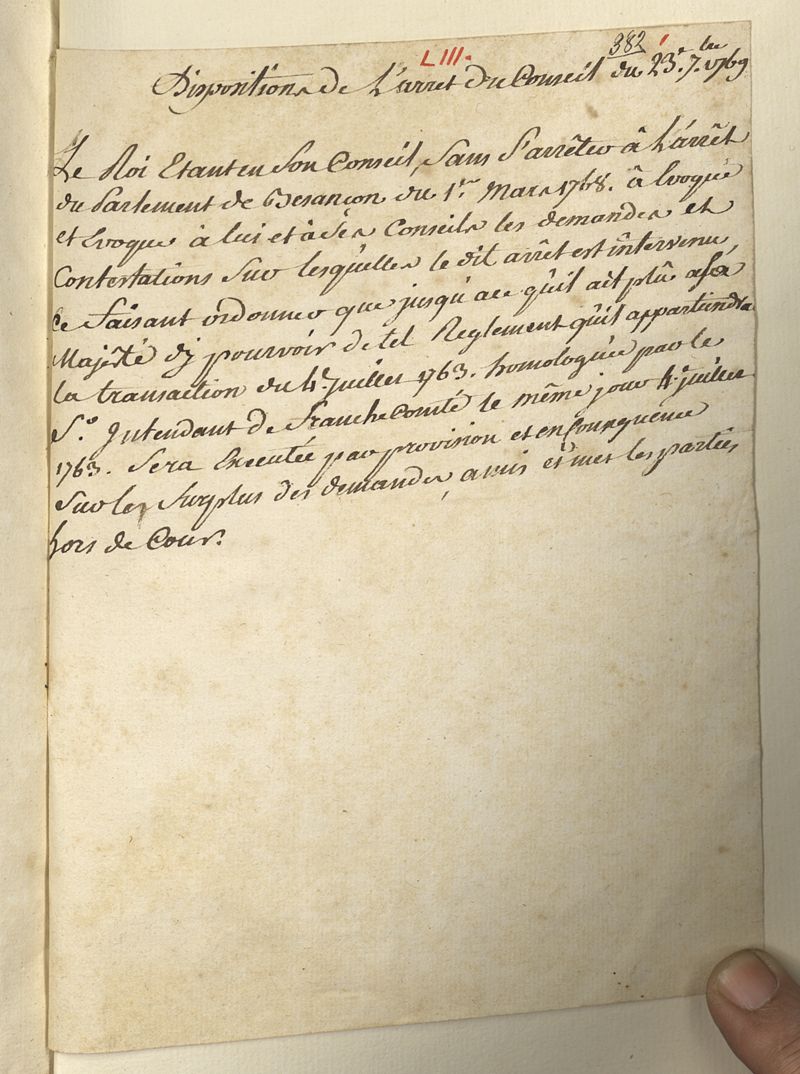 LIII.
382
Dispositions de L'arret du Conseil du 23.e 7.bre 1769
Le Roi Etant en Son Conseil, Sans S'arrêter â L'arrêt
du Parlement de Besançon du 1.er Mars 1768. â Evoqué
et Evoque à lui et à Ses Conseils les demandes et
Contestations Sur lesquelles le dit arrêt est intervenu,
Ce faisant ordonner que jusqu'a ce qu'il ait plû a Sa
Majésté d'y pourvoir de tel Reglement qu'il appartiendra
la transaction du 4.e Juillet 1763. homologuée par le
S.r Intendant de Franche Comté le même jour 4.e juillet
1763. Sera Executée par provision et en Consequence
Sur les Surplus des demandes, a mis et met les parties
hors de Cour.